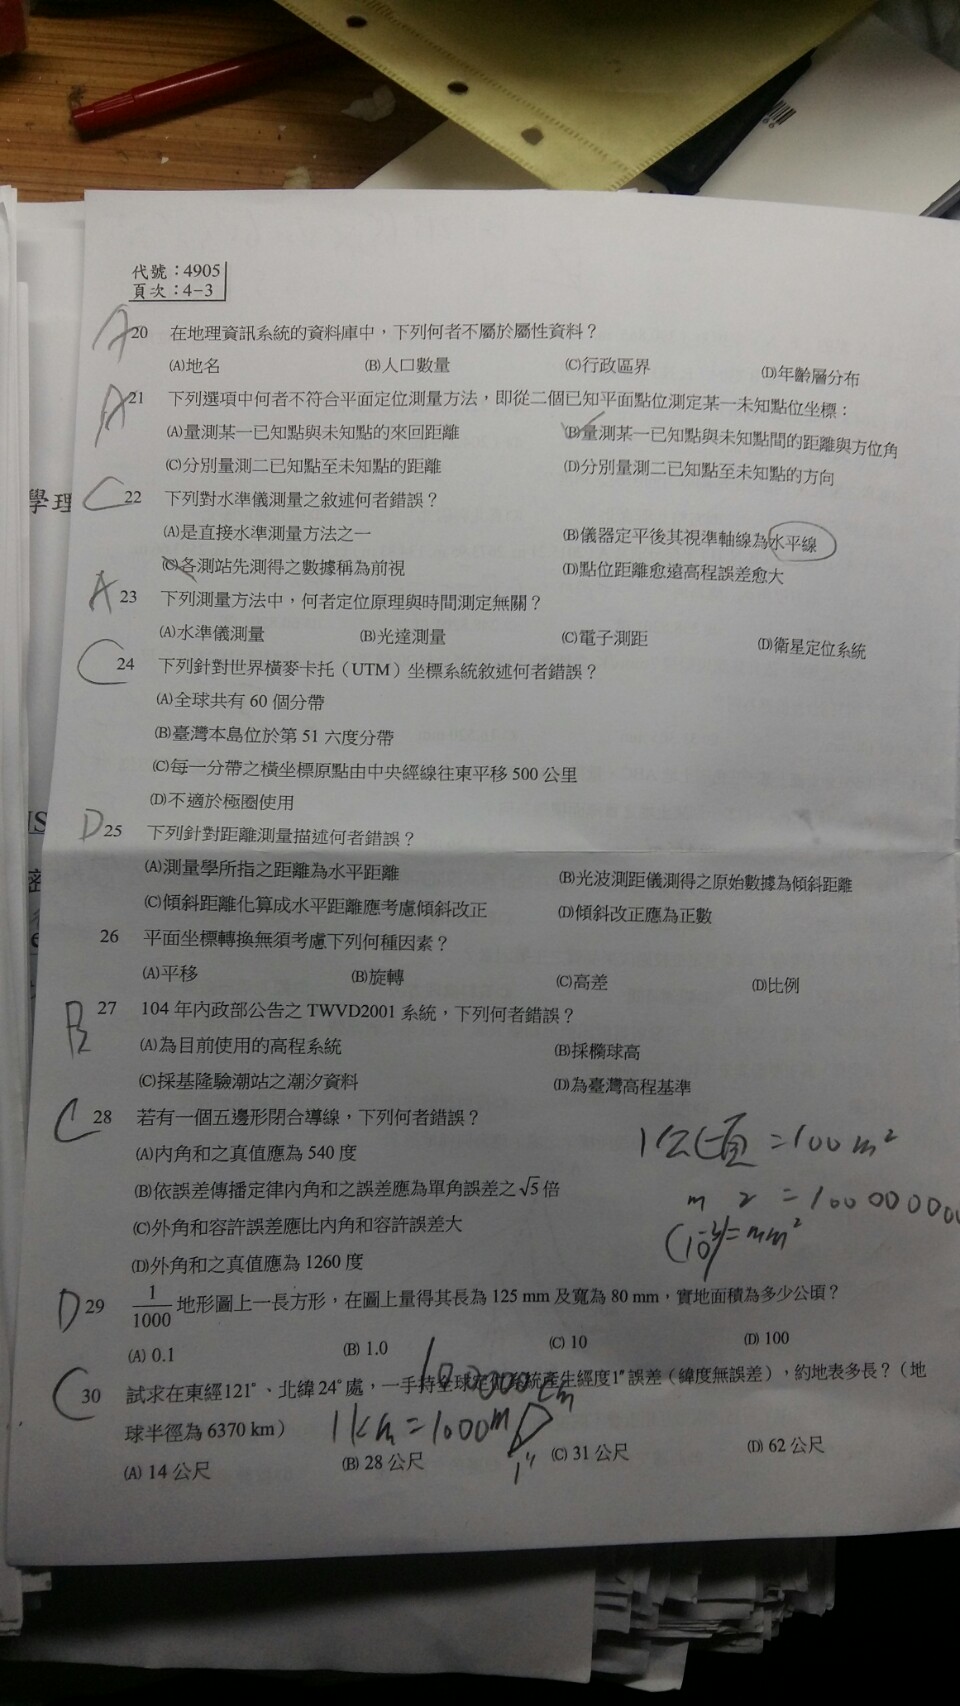 代號：4905
頁次：4－3
A 20 在地理資訊系統的資料庫中，下列何者不屬於屬性資料？
(A)地名 (B)人口數量 (C)行政區界 (D)年齡層分布
A 21 下列選項中何者不符合平面定位測量方法，即從二個已知平面點位測定某一未知點位坐標：
(A)量測某一已知點與未知點的來回距離 (B)量測某一已知點與未知點間的距離與方位角
(C)分別量測二已知點至未知點的距離 (D)分別量測二已知點至未知點的方向
C 22 下列對水準儀測量之敘述何者錯誤？
(A)是直接水準測量方法之一 (B)儀器定平後其視準軸線為水平線
(C)各測站先測得之數據稱為前視 (D)點位距離愈遠高程誤差愈大
A 23 下列測量方法中，何者定位原理與時間測定無關？
(A)水準儀測量 (B)光達測量 (C)電子測距 (D)衛星定位系統
C 24 下列針對世界橫麥卡托（UTM）坐標系統敘述何者錯誤？
(A)全球共有 60 個分帶
(B)臺灣本島位於第 51 六度分帶
(C)每一分帶之橫坐標原點由中央經線往東平移 500 公里
(D)不適於極圈使用
D 25 下列針對距離測量描述何者錯誤？
(A)測量學所指之距離為水平距離 (B)光波測距儀測得之原始數據為傾斜距離
(C)傾斜距離化算成水平距離應考慮傾斜改正 (D)傾斜改正應為正數
26 平面坐標轉換無須考慮下列何種因素？
(A)平移 (B)旋轉 (C)高差 (D)比例
B 27 104 年內政部公告之 TWVD2001 系統，下列何者錯誤？
(A)為目前使用的高程系統 (B)採橢球高
(C)採基隆驗潮站之潮汐資料 (D)為臺灣高程基準
C 28 若有一個五邊形閉合導線，下列何者錯誤？
(A)內角和之真值應為 540 度
1公頃=100m²
(B)依誤差傳播定律內角和之誤差應為單角誤差之√5倍
(C)外角和容許誤差應比內角和容許誤差大
(D)外角和之真值應為 1260 度
D 29 1/1000 地形圖上一長方形，在圖上量得其長為 125 mm 及寬為 80 mm，實地面積為多少公頃？
(A) 0.1 (B) 1.0 (C) 10 (D) 100
C 30 試求在東經121°、北緯24°處，一手持全球定位系統產生經度1"誤差（緯度無誤差），約地表多長？（地
球半徑為 6370 km）
1km=1000m
1"
(A) 14 公尺 (B) 28 公尺 (C) 31 公尺 (D) 62 公尺